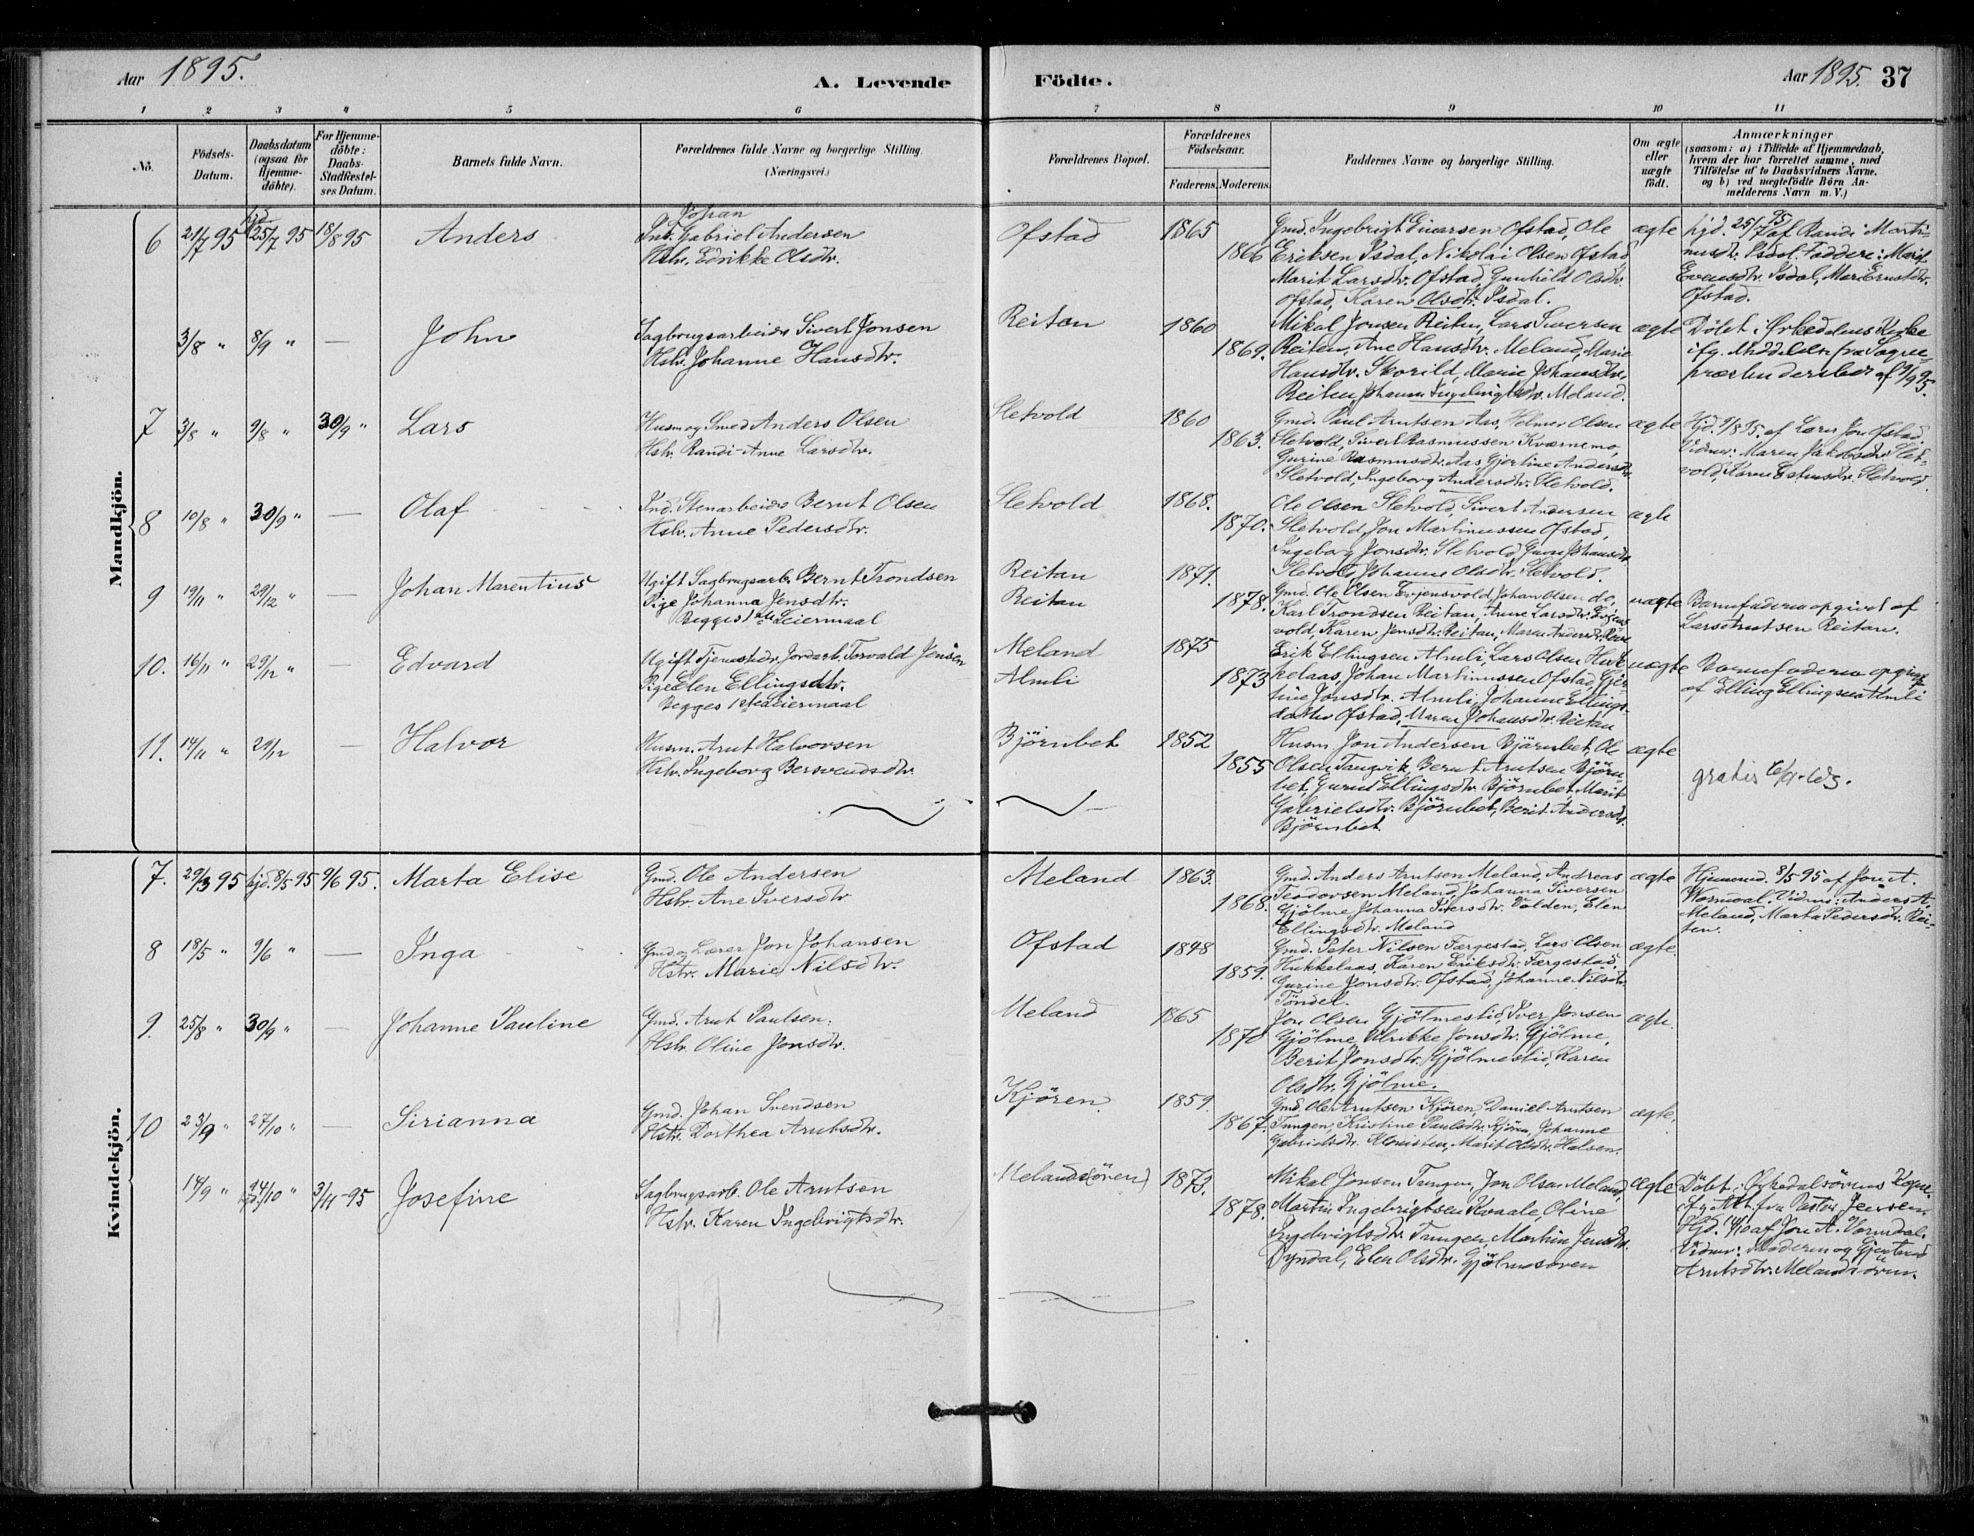 Aar 1895.
A. Levende Födte.
Aar 1895. 37
1 2 3 4 5 6 7 8 9 10 11
Nô.
Födsels-Datum.
Daabsdatum (ogsaa for Hjemme-döbte).
For Hjemme-döbte: Daabs-Stadfæstel-ses Datum.
Barnets fulde Navn.
Forældrenes fulde Navne og borgerlige Stilling. (Næringsvei.)
Forældrenes Bopæl.
Forældrenes Födselsaar.
Faderens. Moderens.
Faddernes Navne og borgerlige Stilling.
Om ægte eller uægte födt.
Anmærkninger
(saasom: a) i Tilfælde af Hjemmedaab, hvem der har forrettet samme, med Tilföielse af to Daabsvidners Navne, og b) ved uægtefödte Börn An-melderens Navn m. V.)
Mandkjön.
6 21/7 95 hjd. 25/7 95 18/8 95 Anders
Johan
Ind. Gabriel Andersen
Hstr. Edrikke Olsdtr.
Ofstad 1865 1866
Gmd. Ingebrigt Einarsen Ofstad, Ole
Eriksen Isdal, Nikolai Olsen Ofstad,
Marit Larsdtr. Ofstad, Gunhild Olsdtr.
Ofstad, Karen Olsdtr. Isdal.
ægte
hjd. 25/7 95 af Randi Marti-
nusdtr. Isdal. Faddere: Marit
Evensdtr. Isdal, Mari Ernstdtr.
Ofstad.
3/8 " 8/9 " — John
Sagbrugsarbeider Sivert Jonsen
Hstr. Johanne Hansdtr.
Reitan 1860 1869.
Mikal Jonsen Reiten, Lars Siversen
Reiten, Ane Hansdtr. Meland, Marie
Hansdtr. Skorild, Marie Johansdtr.
Reiten, Johanna Ingebrigtsdtr. Meland.
ægte
Döbt i Ørkedalens Kirke
ifg. Meddelelse fra Sogne-
præsten dersteds af 9/9 95.
7 3/8 " 9/8 " 30/9 " Lars
Husm og Smed Anders Olsen
Hstr. Randi-Anne Larsdtr.
Sletvold 1860 1863.
Gmd. Paul Arntsen Aas, Helmer Olsen
Sletvold, Sivert Rasmussen Kværnemo,
Gurine Rasmusdtr. Aas, Gjertine Andersdtr.
Sletvold, Ingeborg Andersdtr. Sletvold.
ægte
Hjd. 9/8 95. af Lærer Jon Ofstad.
Vidner: Maren Jakobsdtr. Slet-
vold, Karen Estensdtr. Sletvold
8 10/8 " 30/9 " — Olaf
Ind. Stenarbeider Bernt Olsen
Hstr. Anne Pedersdtr.
Sletvold 1868. 1870.
Ole Olsen Sletvold, Sivert Andersen
Sletvold, Jon Martinussen Ofstad,
Ingeborg Jonsdtr. Sletvold, Guru Johansdtr.
Sletvold, Johanne Olsdtr. Sletvold.
ægte
9 19/11 " 29/12 " — Johan Marentius
Ugift Sagbrugsarb. Bernt Trondsen
Pige Johanna Jensdtr.
Begges 1ste Leiermaal
Reitan
Reitan
1871. 1878.
Gmd. Ole Olsen Evjensvold, Johan Olsen do,
Karl Trondsen Reitan, Anne Larsdtr. Evjens
vold, Karen Jensdtr. Reitan, Maren Andersdtr.
uægte
Barnefaderen opgivet af
Lars Arntsen Reitan.
10. 16/11 " 29/12 " — Edvard
Ugift Tjenestedr. Jordarb. Torvald Jensen
Pige Elen Ellingsdtr.
Begges 1ste Leiermaal
Meland
Almli
1875 1873
Erik Ellingsen Almli, Lars Olsen Huk-
kelaas, Johan Martinussen Ofstad, Gjer-
tine Jonsdtr. Almli, Johanne Ellings-
datter Ofstad, Maren Johansdtr. Reitan
uægte
Barnefaderen opgivet
af Elling Ellingsen Almli
11. 14/11 " 29/12 — Halvor
Husm. Arnt Halvorsen
Hstr. Ingeborg Bersvendsdtr.
Björnbet 1852 1855
Husm. Jon Andersen Björnbet, Ole
Olsen Tangvik, Bernt Arntsen Björn-
bet, Guru Ellingsdtr. Björnbet, Marit
Gabrielsdtr. Björnbet, Berit Andersdtr.
Björnbet
ægte
gratis
Kvindekjön.
7. 29/3 95 hjd. 8/5 95 9/6 95. Marta Elise
Gmd. Ole Andersen
Hstr. Ane Iversdtr.
Meland 1863. 1868.
Gmd. Anders Arntsen Meland, Andreas
Teodorsen Meland, Johanna Siversen
Gjölme, Johanna Iversdtr. Volden, Elen
Ellingsdtr. Meland
ægte
Hjemmed. 8/5 95 af Jon A.
Wormdal. Vidner: Anders A.
Meland, Marta Pedersdtr. Rei-
ten.
8 18/5 " 9/6 " — Inga
Gmd. og Lærer Jon Johansen
Hstr. Marie Nilsdtr.
Ofstad 1848 1859.
Gmd. Peter Nilsen Færgestad, Lars Olsen
Hukkelaas, Karen Eriksdtr. Færgestad,
Gurine Jonsdtr. Ofstad, Johanne Nilsdtr.
Töndel.
ægte.
9. 25/8 " 30/9 " — Johanne Pauline
Gmd. Arnt Paulsen.
Hstr. Oline Jonsdtr.
Meland 1865 1870
Jon Olsen Gjölmeslid, Iver Jonsen
Gjölme, Ulrikke Jonsdtr. Gjölme,
Berit Jonsdtr. Gjölmeslid, Karen
Olsdtr. Gjölme.
ægte.
10 23/9 " 27/10 " — Sirianna
Gmd. Johan Svendsen
Hstr. Dorthea Arntsdtr.
Kjören. 1859. 1867.
Gmd. Ole Arntsen Kjören, Daniel Arntsen
Tungen, Kristine Paulsdtr. Kjören, Johanne
Gabrielsdtr. Marit Olsdtr. Halsen.
ægte.
14/9 " hjd. 14/10 " 3/11 95 Josefine
Sagbrugsarb. Ole Arntsen
Hstr. Karen Ingebrigtsdtr.
Melands(ören) 1873. 1878.
Mikal Jonsen Tungen, Jon Olsen Meland,
Martin Ingebrigtsen Kvaale, Oline
Ingebrigtsdtr. Tungen, Martine Jensdtr.
Dyndal, Elen Olsdtr. Gjölmesören
ægte
Döbt i Orkedalsörens Kapel
ifg. Att. fra Pastor Jensen.
Hjd. 14/10 af Jon A. Vormdal.
Vidner: Moderen og Gjertrud
Arntsdtr. Melandsören.